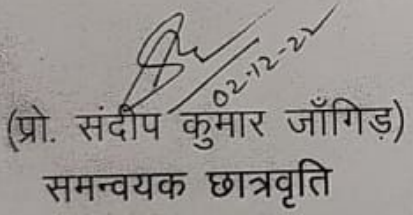 02-12-22
(प्रो. संदीप कुमार जाँगिड़)
समन्वयक छात्रवृति